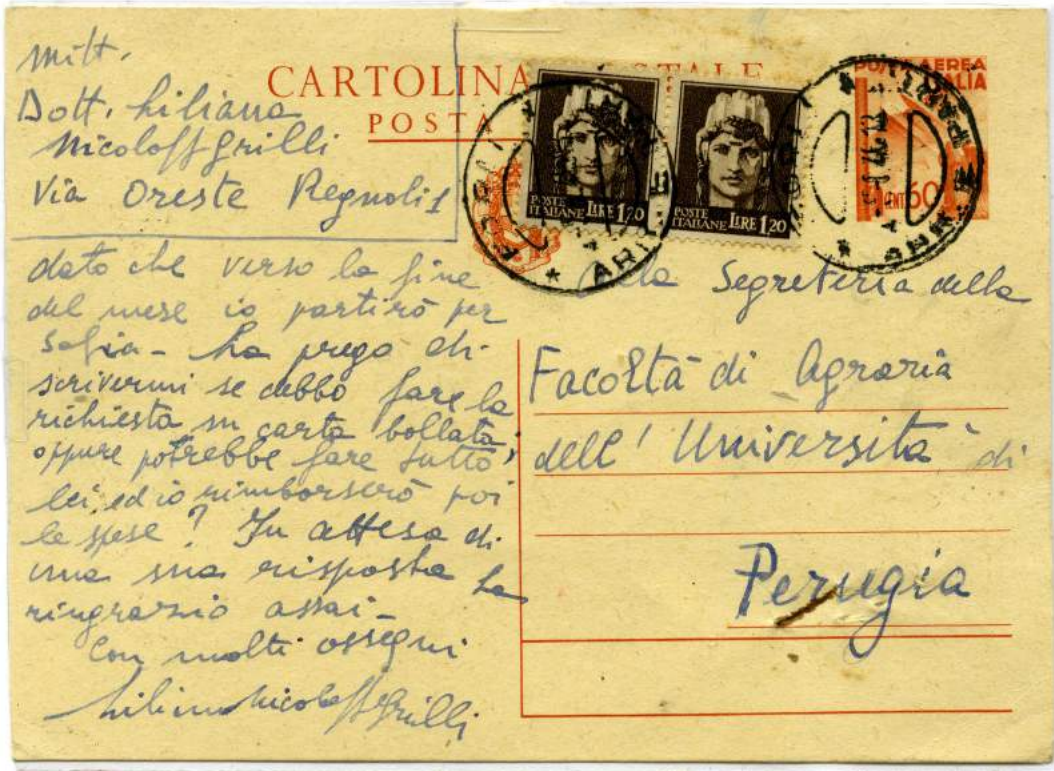 mitt.
Dott. Liliana
Nicoloff Grilli
Via Oreste Regnoli 1
CARTOLINA POSTALE
POSTA
POSTA AEREA
ITALIA
CENT 60
POSTE
ITALIANE LIRE 1,20
POSTE
ITALIANE LIRE 1,20
FORLI
ARRIVI E PARTENZE
dato che verso la fine
del mese io partirò per
Sofia - La prego di
scrivermi se debbo fare la
richiesta su carta bollata,
oppure potrebbe fare tutto
lei ed io rimborserò poi
le spese? In attesa di
una sua risposta La
ringrazio assai -
Con molti ossequi
Liliana Nicoloff Grilli
Alla Segreteria della
Facoltà di Agraria
dell' Università di
Perugia